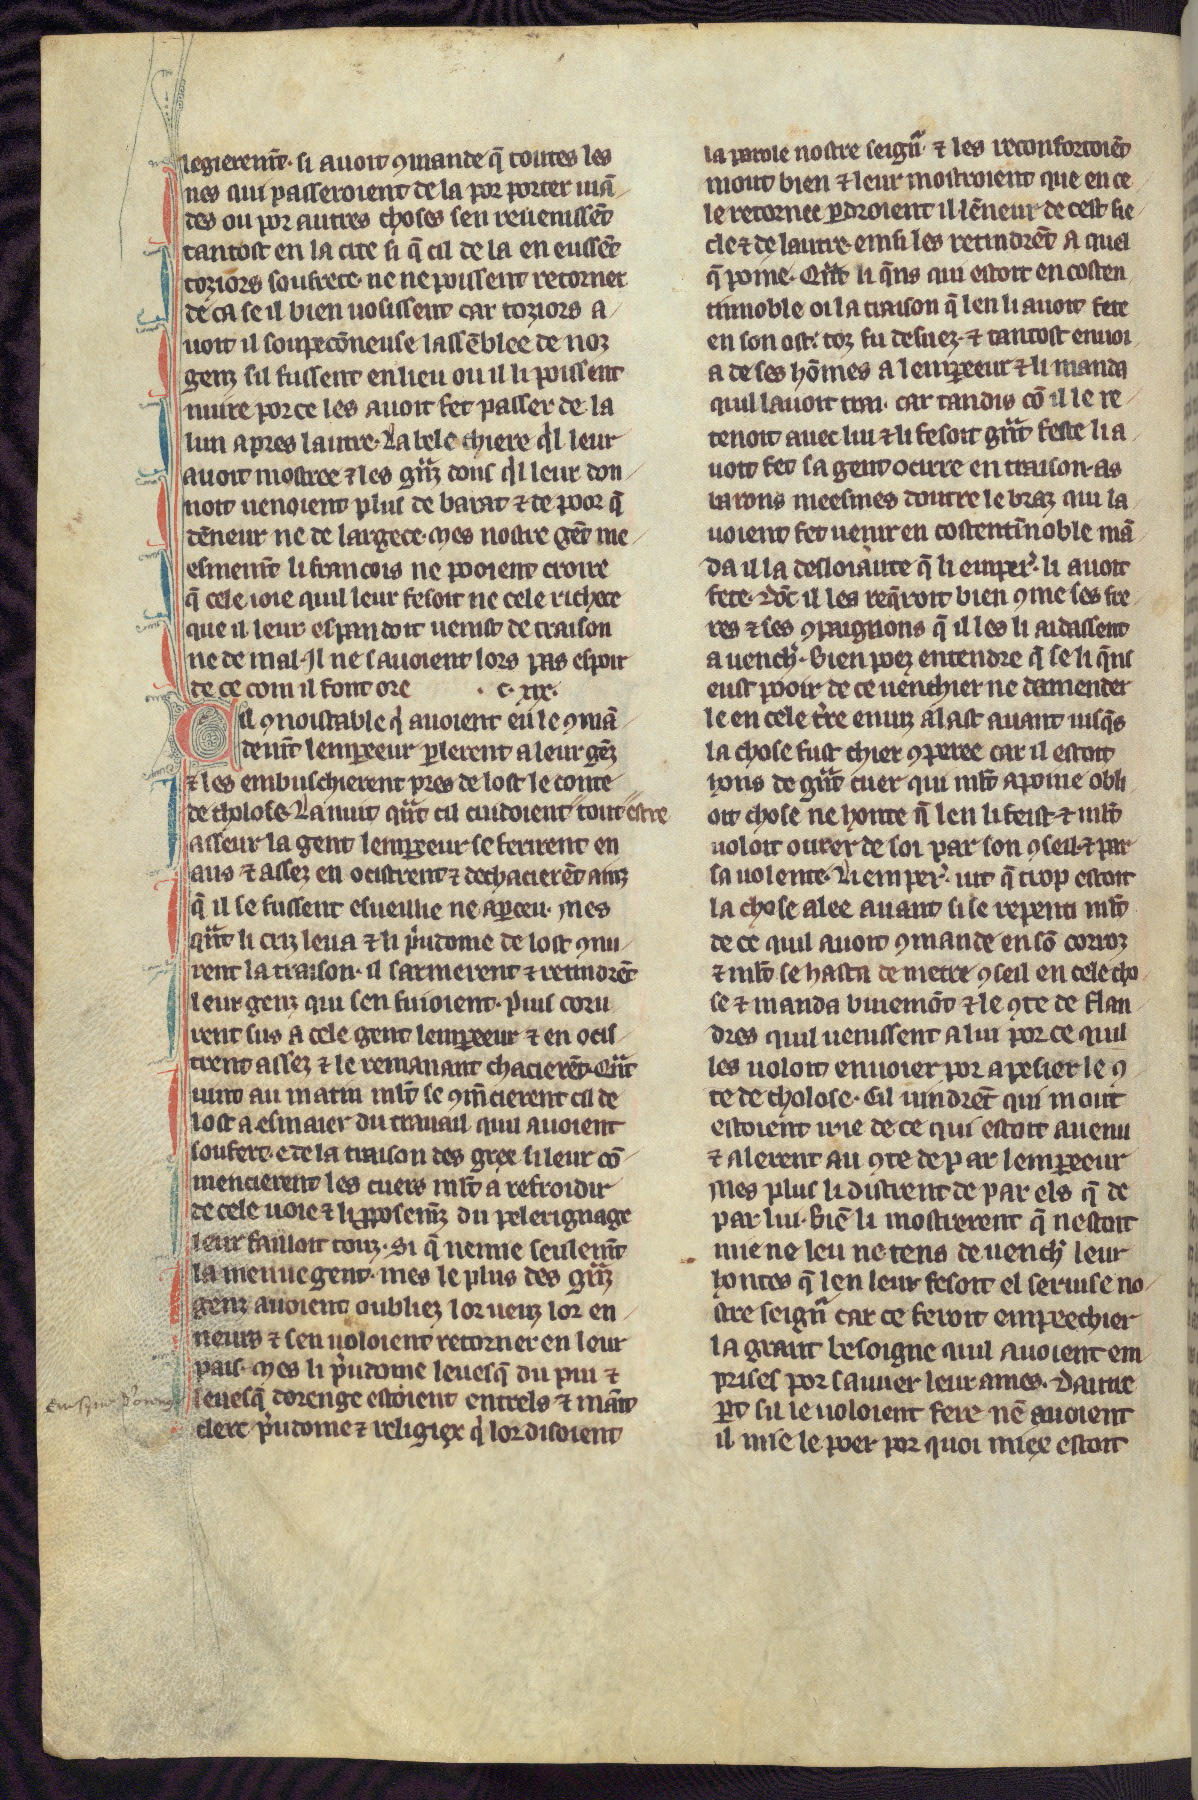 legieremt̄. si auoit ꝯmande q̄ toutes les
nes qui passeroient de la por porter uiā
des ou por autres choses sen reuenissēt
tantost en la cite si q̄ cil de la en eussēt
toriors soufrete. ne ne poissent retorner
de ca se il bien uosissent car toriors a
uoit il soupecōneuse lassēblee de noz
genz sil fussent en lieu ou il li poissent
nuire por ce les auoit fet passer de la
lun apres lautre. La bele chiere q̇l leur
auoit mostree ⁊ les gꝛ̄z dons q̇l leur don
noit uenoient plus de barat ⁊ de poor q̄
dēneur ne de largece. Mes nostre gēt me
esmemt̄ li francois ne pooient croire
q̄ cele ioie quil leur fesoit ne cele richece
que il leur espandoit uenist de traison
ne de mal. Il ne sauoient lors pas espoir
de ce com il font ore . c. xix.
Cil ꝯnoistable q̇ auoient eu le ꝯmā
demt̄ lempereeur ꝑlerent a leur gēz
⁊ les embuschierent pres de lost le conte
de tholose. La nuit qꝛ̄t cil cuidoient tout estre
asseur la gent lempereeur se ferirent en
aus ⁊ assez en ocistrent ⁊ dechacierēt ainz
q̄ il se fussent esueillie ne aꝑceu. Mes
qꝛ̄t li criz leua ⁊ li ṗudome de lost ꝯnu
rent la traison. il sarmerent ⁊ retindrēt
leur genz qui sen fuioient. Puis coru
rent sus a cele gent lempereeur ⁊ en ocis
trent assez ⁊ le remanant chacierēt. Qꝛ̄t
uint au matin ml̄t se ꝯmēcierent cil de
lost a esmaier du trauail quil auoient
soufert. e de la traison des grex si leur cō
mencierent les cuers ml̄t a refroidir
de cele uoie ⁊ li ꝓposemz̄ du pelerignage
leur failloit touz. Si q̄ nenie seulemt̄
la menue gent. mes le plus des gꝛ̄z
genz auoient oubliez lor ueuz lor en
neurs ⁊ sen uoloient retorner en leur
pais. Mes li ṗudome leuesq̄ du pui ⁊
leuesq̄ dorenge estoient entrels ⁊ māit
clerc ṗudome ⁊ religiex q̇ lor disoient
la parole nostre seignr̄ ⁊ les reconfortoiēt
mout bien ⁊ leur mostroient que en ce
le retornee ꝑdroient il lēneur de cest sie
cle ⁊ de lautre. einsi les retindrēt a quel
q̄ poine. Qꝛ̄t li q̄ns qui estoit en costen
tinnoble oi la traison q̄ len li auoit fete
en son ost. toz fu desuez. ⁊ tantost enuoi
a de ses hōmes a lempereeur ⁊ li manda
quil lauoit trai. car tandis cō il le re
tenoit auec lui ⁊ li fesoit gꝛ̄t feste li a
uoit fet sa gent ocirre en traison. As
barons meesmes doutre le braz qui la
uoient fet uenir en costentīnoble mā
da il la desloiaute q̄ li emper̄. li auoit
fete. Dōc il les req̄roit bien ꝯme ses fre
res ⁊ ses ꝯpaignons q̄ il les li aidassent
a uench̄. Bien poez entendre q̄ se li q̄ns
eust pooir de ce uenchier ne damender
le en cele t̄re enuiz alast auant iusq̄s
la chose fust chier ꝯperee car il estoit
hons de gꝛ̄t cuer qui ml̄t a poine obli
oit chose ne honte q̄ len li feist ⁊ ml̄t
uoloit ourer de soi par son ꝯseil ⁊ par
sa uolente. Li emper̄. uit q̄ trop estoit
la chose alee auant si se repenti ml̄t
de ce quil auoit ꝯmande en sō corroz
⁊ ml̄t se hasta de metre ꝯseil en cele cho
se ⁊ manda buiemōt ⁊ le ꝯte de flan
dres quil uenissent a lui por ce quil
les uoloit enuoier por apesier le ꝯ
te de tholose. Cil uindrēt qui mout
estoient irie de ce qui estoit auenu
⁊ alerent au ꝯte de par lempereeur
Mes plus li distrent de par els q̄ de
par lui. Biē li mostrerent q̄ nestoit
mie ne leu ne tens de uench̄ leur
hontes q̄ len leur fesoit el seruise no
stre seignr̄ car ce seroit empeechier
la grant besoigne quil auoient em
prises por sauuer leur ames. Dautre
ꝑt sil le uoloient fere nē auoient
il mie le poer por quoi miex estoit